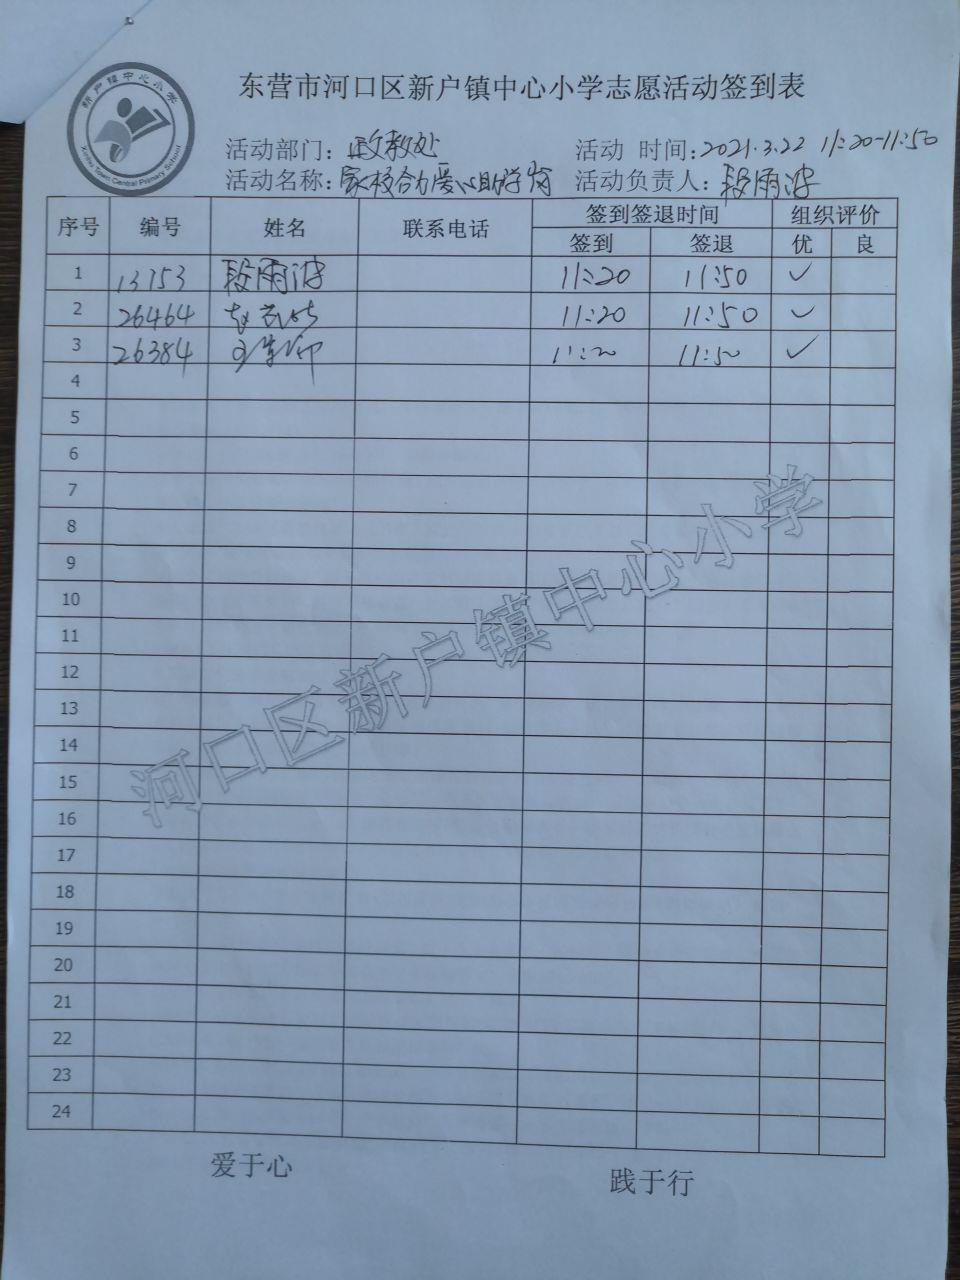 新户镇中心小学
Xinhu Town Central Primary School
东营市河口区新户镇中心小学志愿活动签到表
活动部门：政教处 活动 时间：2021.3.22 11:20-11:50
活动名称：家校合力爱心助学岗 活动负责人：段雨波
序号 编号 姓名 联系电话 签到签退时间 组织评价
签到 签退 优 良
1 13753 段雨波 11:20 11:50 ✓
2 26464 赵 11:20 11:50 ✓
3 26384 11:20 11:50 ✓
4
5
6
7
8
9
10
11
12
13
14
15
16
17
18
19
20
21
22
23
24
河口区新户镇中心小学
爱于心 践于行